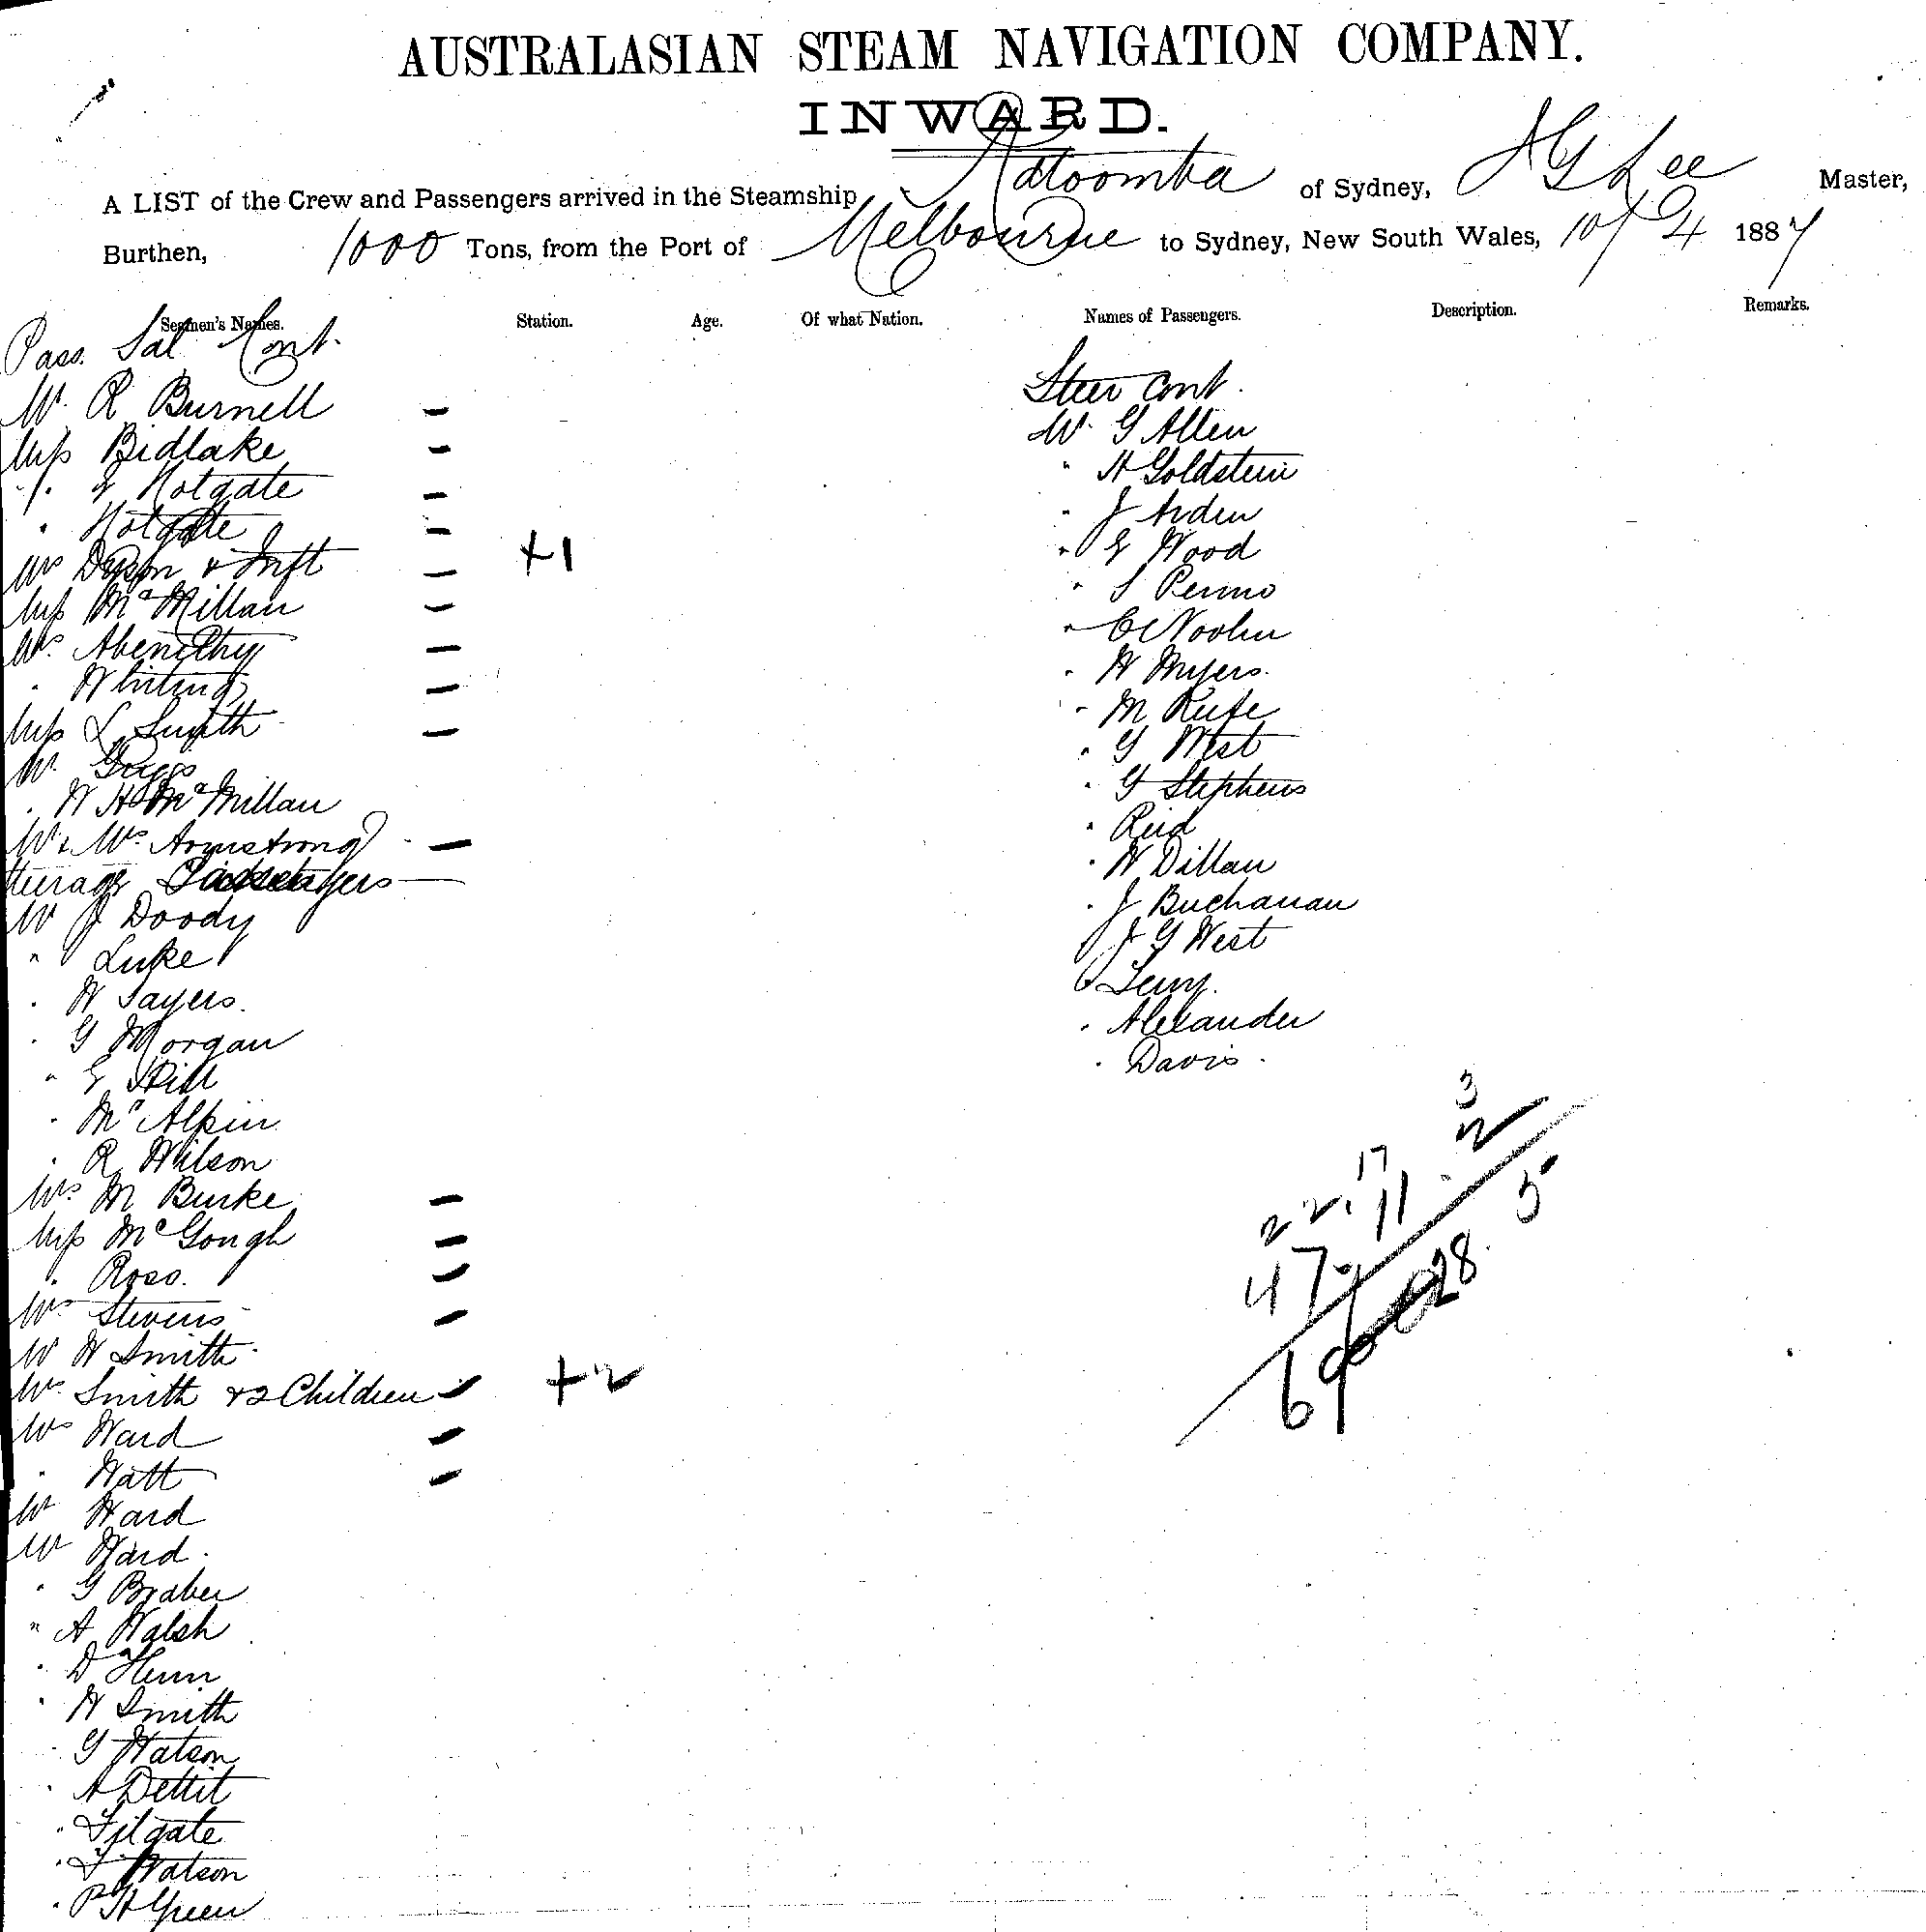 AUSTRALASIAN STEAM NAVIGATION COMPANY.
INWARD.
A LIST of the Crew and Passengers arrived in the Steamship Katoomba of Sydney, Lee Master,
Burthen, 1000 Tons, from the Port of Melbourne to Sydney, New South Wales, 10/4 1887
Seamen's Names. Station. Age. Of what Nation. Names of Passengers. Description. Remarks.
Pass. Sal Cont.
Mr R Burnell
Miss Bidlake
" E Holgate
" Holgate
Mrs Dixon & Inft +1
Miss McMillan
Mrs Abenethy
" Whiting
Miss L Smith
Mr Griggs
" W H McMillan
Mr & Mrs Armstrong
Steerage Passengers
Mr J Doody
" Luke
" W Sayers.
" G Morgan
" E Hill
" McAlpin
" R Wilson
Mrs M Burke
Miss McGough
" Ross.
Mrs Stevens
Mr W Smith
Mrs Smith & 2 Children +2
Mrs Ward
" Watt
Mr Ward
Mr Ward.
" G Braber
" A Walsh
" D Henn
" W Smith
" G Watson
" A Dettit
" Filgate
" F Watson
" P H Green
Steer Cont.
Mr G Allen
" H Goldstein
" J Arden
" E Wood
" S Permo
" C Noolin
" W Myers.
" M Rufe
" G West
" G Stephens
" Reid
" W Dillan
" J Buchanan
" J G West
" Levy.
" Alexander
" Davis.
3
2
17
22. 11
47. 5
28.
69